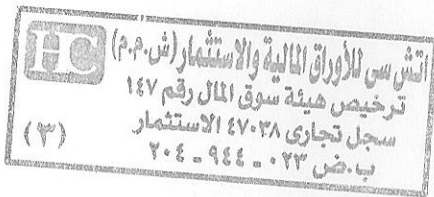 اتش سى للأوراق المالية والاستثمار (ش.م.م)
HC
ترخيص هيئة سوق المال رقم ١٤٧
سجل تجارى ٤٧٠٣٨ الاستثمار
(٣)
ب.ض ٠٢٣ - ٩٤٤ - ٢٠٤